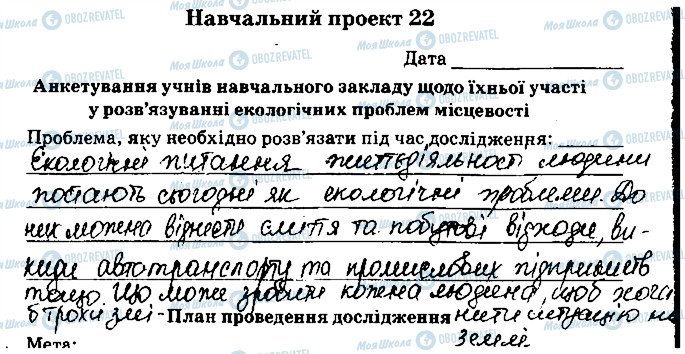 Навчальний проект 22
Дата
Анкетування учнів навчального закладу щодо їхньої участі
у розв'язуванні екологічних проблем місцевості
Проблема, яку необхідно розв'язати під час дослідження:
Екологічні питання життєдіяльності людини
постають сьогодні як екологічні проблеми. До
них можна віднести сміття та побутові відходи, ви-
киди автотранспорту та промислових підприємств
тощо. Що може зробити кожна людина, щоб хоча
б трохи змі- План проведення дослідження нити ситуацію на
Мета: Землі